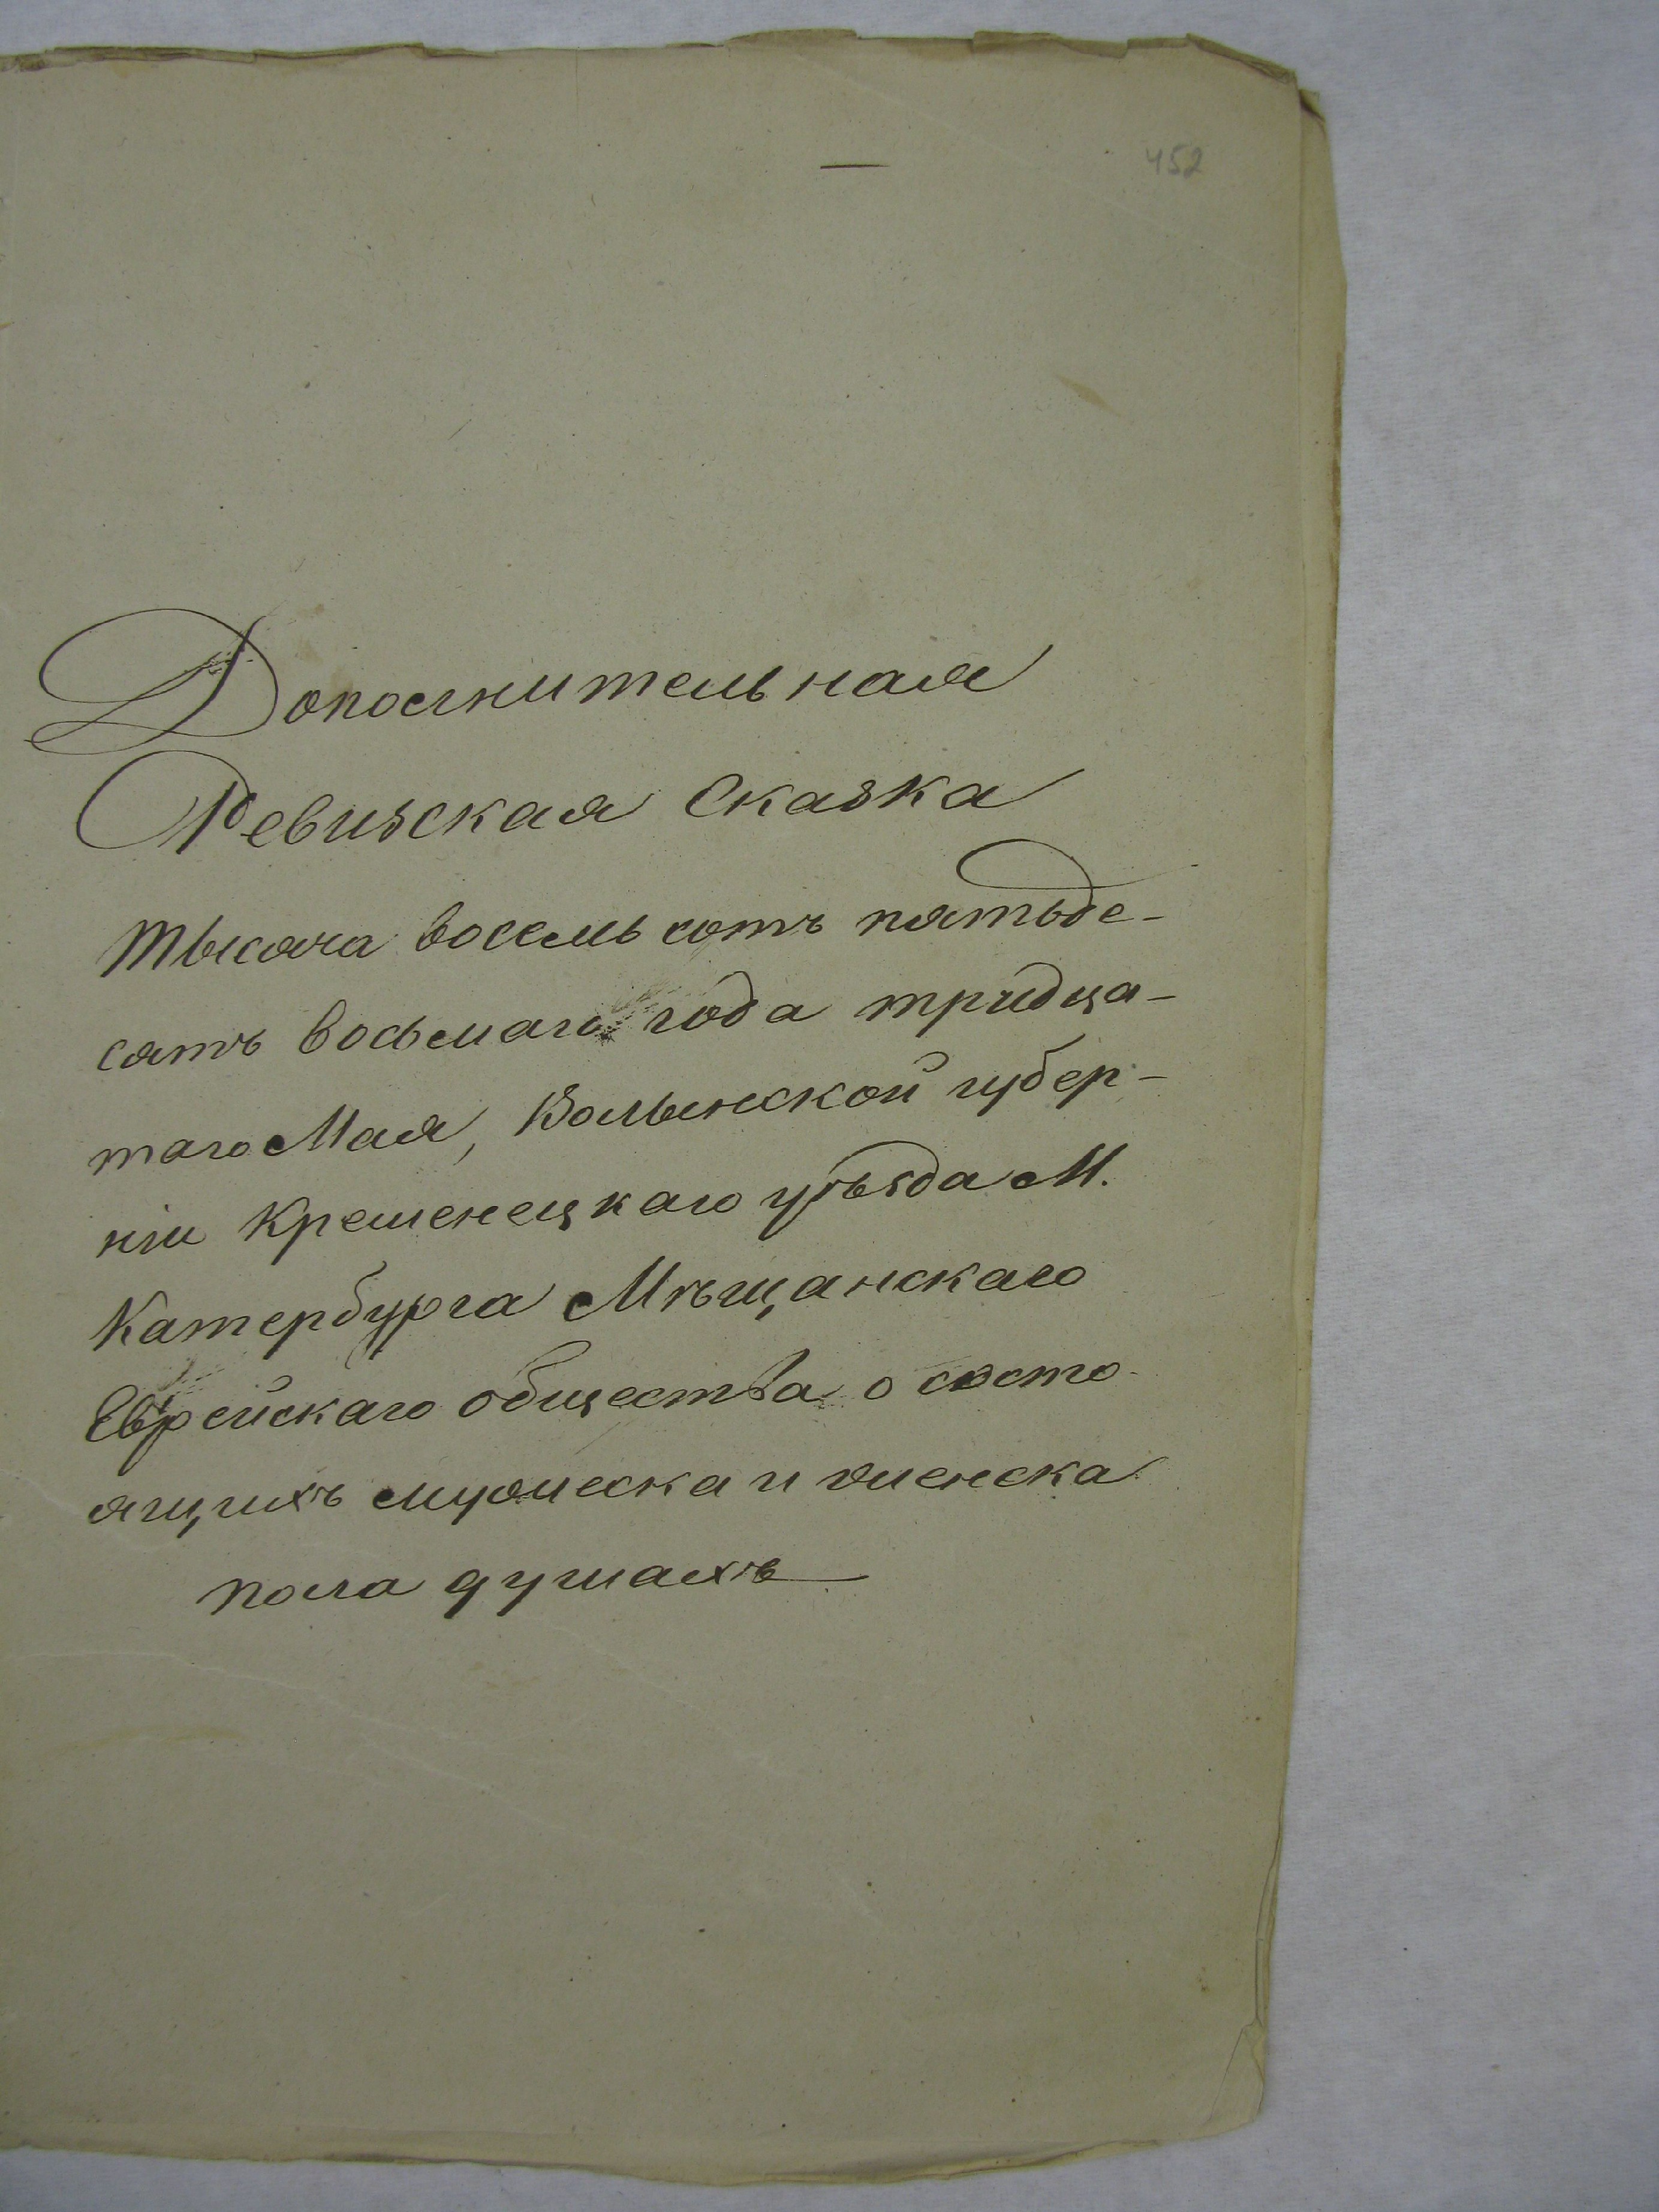 452
Дополнительная
Ревизская Сказка
тысяча восемь сотъ пятьде-
сятъ восьмаго года тридца-
таго Мая, Волынской губер-
ніи Кременецкаго уѣзда М.
Катербурга Мѣщанскаго
Еврейскаго общества о состо-
ящихъ мужеска и женска
пола душахъ